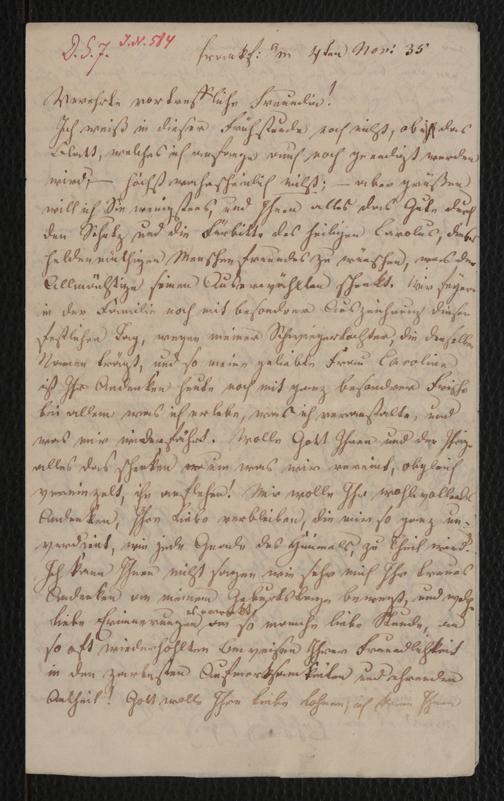 D. S. 7. J. N. 514
Frankf: a/m 4ten Nov: 35
Verehrte vortreffliche Freundin!
Ich weiß in dieser Frühstunde noch nicht, ob ich das
Blatt, welches ich anfange auch noch geendigt werden
wird, — höchst wahrscheinlich nicht; — aber grüßen
will ich Sie wenigstens, und Ihnen alles das Gute durch
den Schutz und die Fürbitte des heiligen Carolus, dieses
heldenmüthigen Menschenfreundes zu wünschen, was der
Allmächtige seinen Auserwählten schenkt. Wir feyern
in der Familie noch mit besondrer Auszeichnung diesen
festlichen Tag, wegen meiner Schwiegertochter, die denselben
Namen trägt, und so meine geliebte Frau Caroline
ist Ihr Andenken heute noch mit ganz besondrer Frische
bei allem was ich erlebe, was ich veranstalte, und
was mir wiederfährt. Wolle Gott Ihnen und der Ihrigen
alles das schenken warum was wir vereint, obgleich
vereinzelt, ihn anflehen! Mir wolle Ihr wohlwollendes
Andenken, Ihre Liebe verbleiben, die mir so ganz un-
verdient, wie jede Gnade des Himmels zu Theil wird.
Ich kann Ihnen nicht sagen wie sehr mich Ihr treues
Andenken an meinem Geburtstage bewegt, und welche
liebe Erinnerungen an so manche liebe Stunde, an
so oft wiederhohlten Beweisen Ihrer Freundlichkeit
in den zartesten Aufmerksamkeiten und ehrenden
Antheil! Gott wolle Ihre Liebe lohnen, ich kann Ihnen